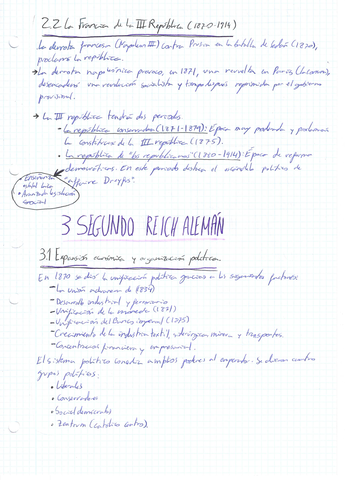 2.2 La Francia de la III República (1870-1914)
La derrota francesa (Napoleón III) contra Prusia en la batalla de Sedán (1870),
proclamó la república.
→ La derrota napoleónica provocó, en 1871, una revuelta en París (la comuna),
desencadenó una revolución socialista y tiempo después reprimida por el gobierno
provisional.
→ La III república tendrá dos periodos
- La república conservadora (1871-1879): Época muy moderada y proclamaron
la constitución de la III república (1875).
- La república de "los republicanos" (1880-1914): Época de reformas
democráticas. En este periodo destaca el escándalo político de
"affaire Dreyfus".
• Enseñanza
estatal laica
• Avanzada legislación
social
3 SEGUNDO REICH ALEMÁN
3.1 Expansión económica y organización política.
En 1870 se dió la unificación política gracias a los siguientes factores:
- La unión aduanera de 1834
- Desarrollo industrial y ferroviario
- Unificación de la moneda (1871)
- Unificación del Banco imperial (1875)
- Crecimiento de la industria textil, siderúrgica, minera y transportes
- Concentración financiera y empresarial.
El sistema político concedía amplios poderes al emperador. Se dieron cuatro
grupos políticos:
• Liberales
• Conservadores
• Socialdemócratas
• Zentrum (católico centro).